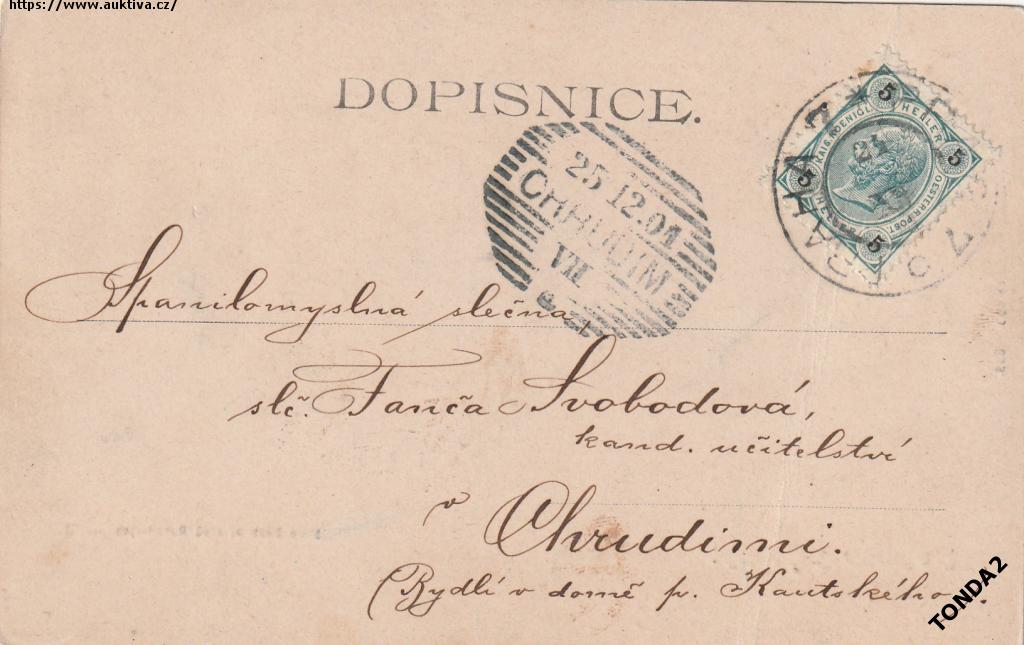 https://www.auktiva.cz/
DOPISNICE.
25.12.01
CHRUDIM
VII
PRAHA
5 5 5 5
KAIS. KOENIGL.
OESTERR. POST.
HELLER
HELLER
Spanilomyslná slečna,
slč. Fanča Svobodová,
kand. učitelství
v
Chrudimi.
(Bydlí v domě p. Kautského.
TONDA2